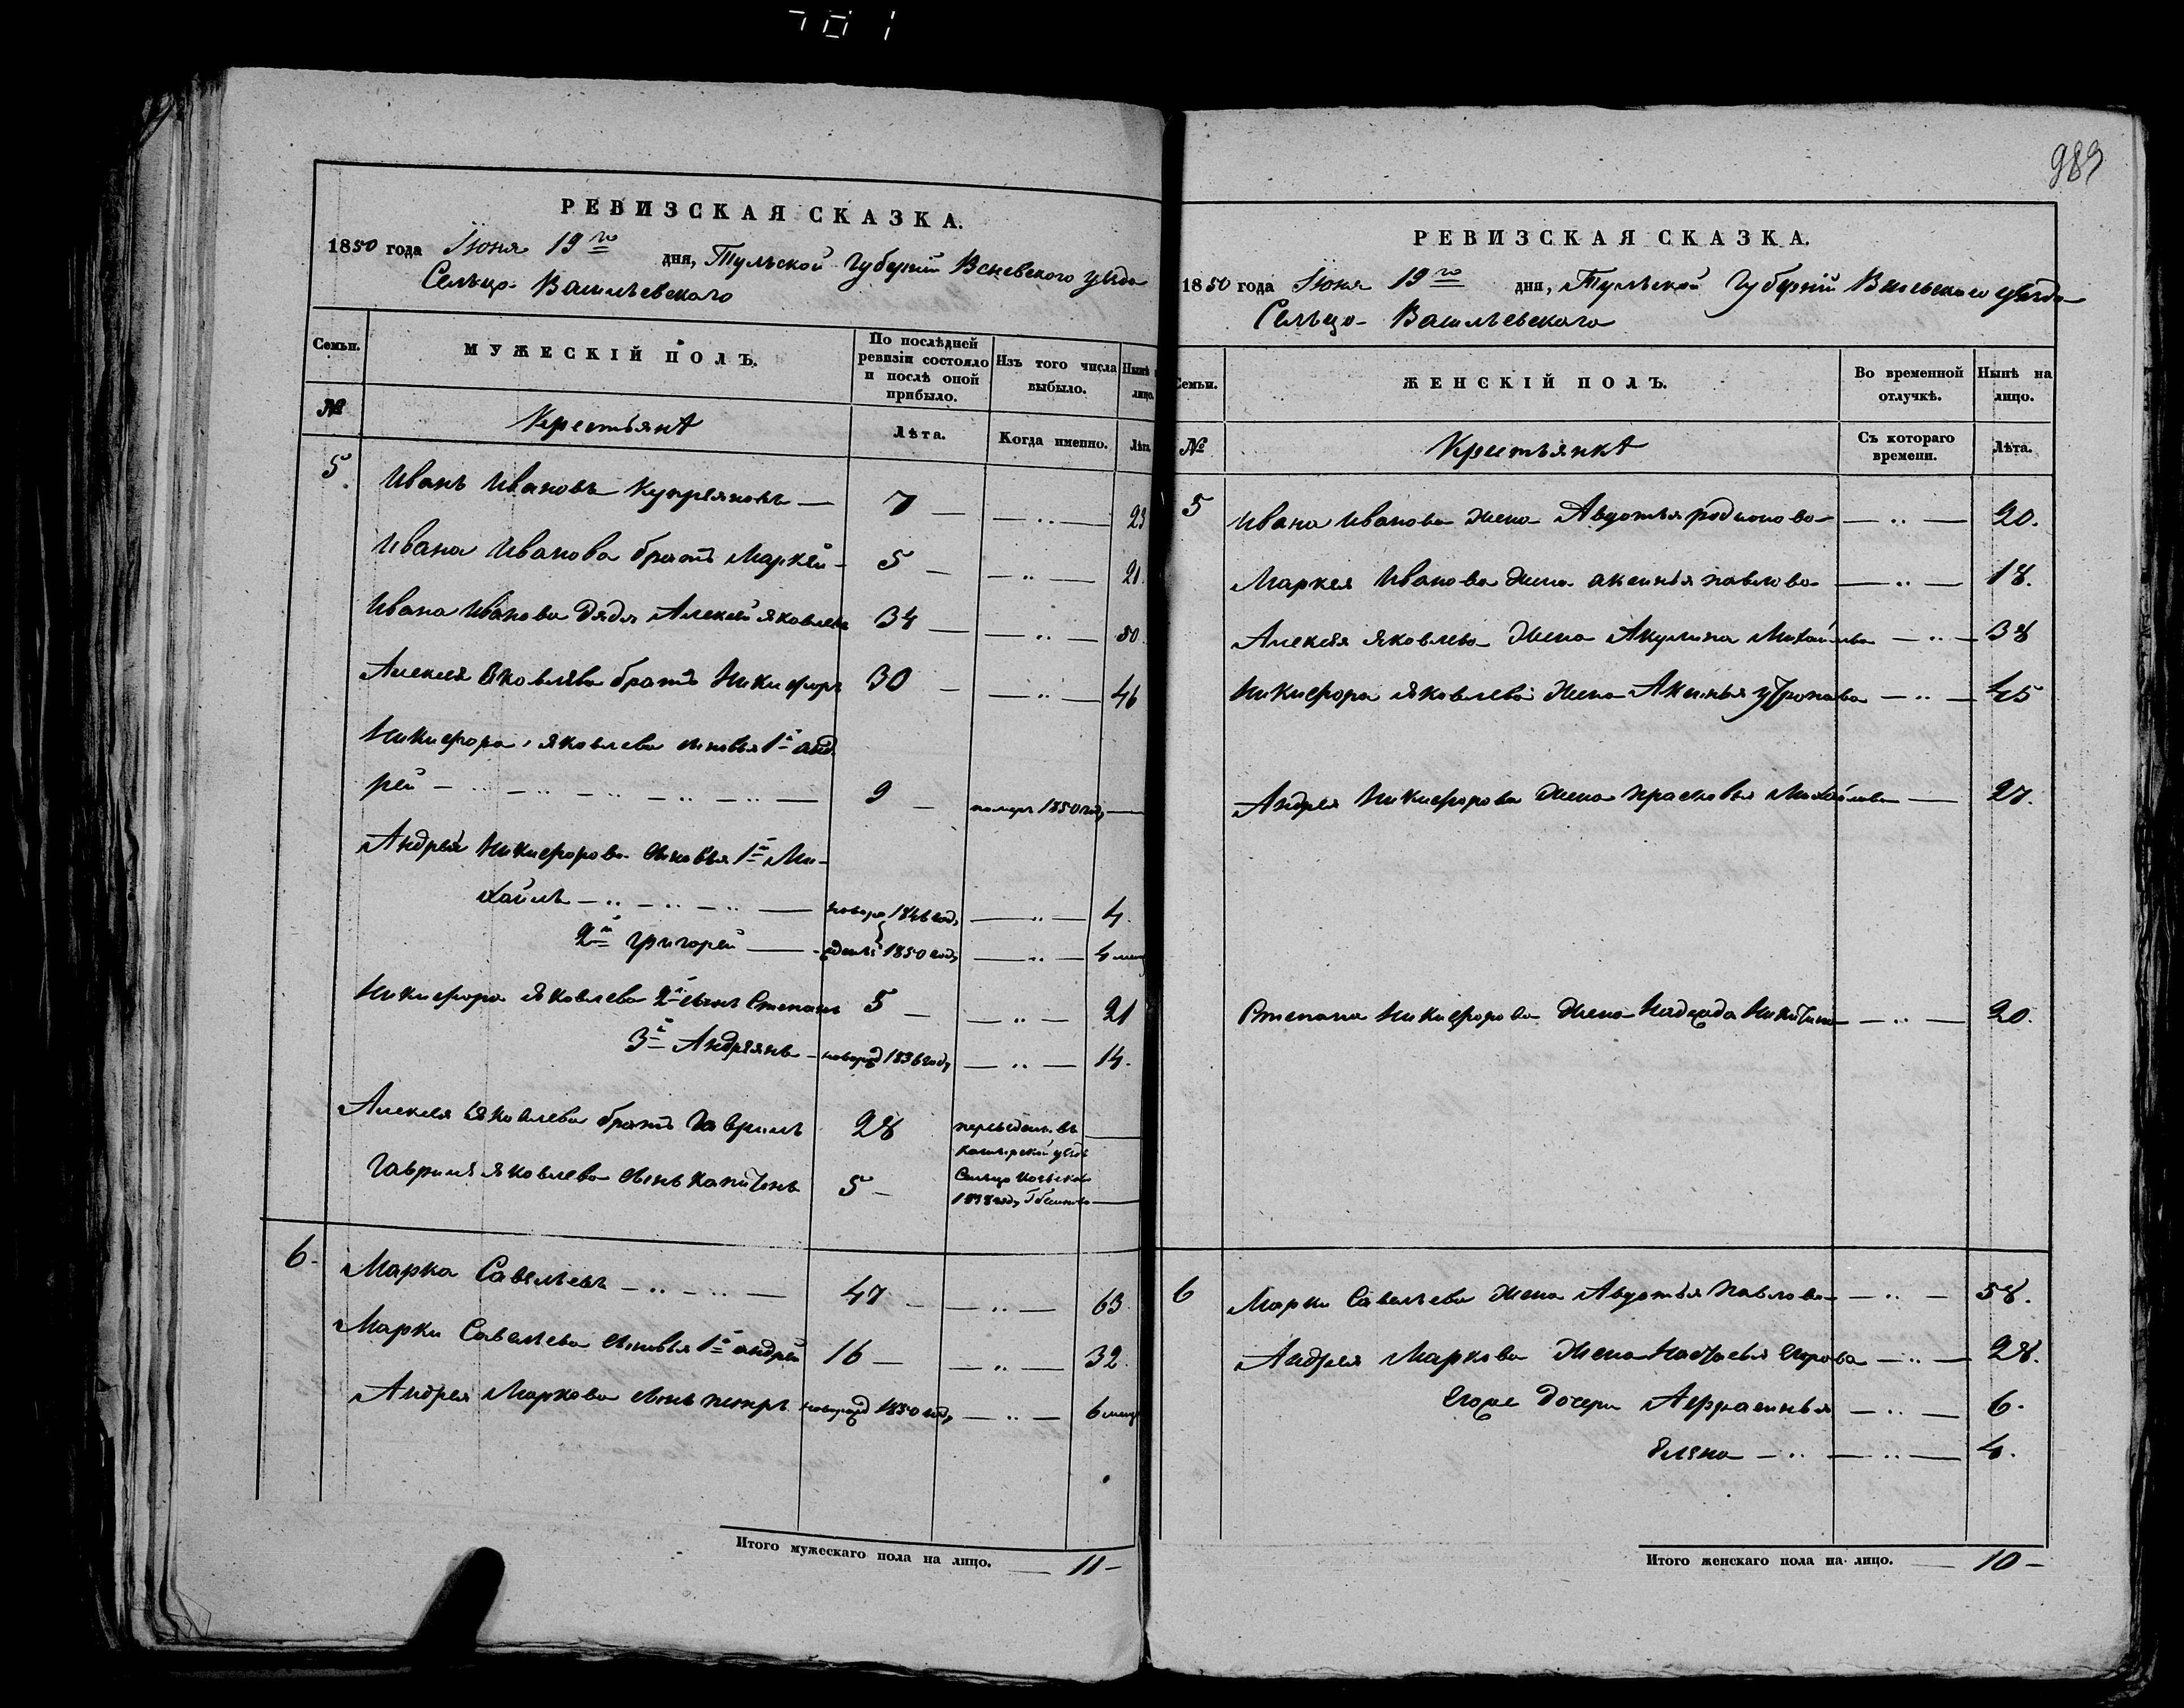 701
989
РЕВИЗСКАЯ СКАЗКА.
1850 года Іюня 19го дня, Тульской Губерніи Веневского уѣзда
Сельцо Васильевскаго
Семьи.
МУЖЕСКІЙ ПОЛЪ.
По послѣдней ревизіи состояло и послѣ оной прибыло.
Изъ того числа выбыло.
Нынѣ на лицо.
№ Крестьянѣ Лѣта. Когда именно. Лѣта
5 Иванъ Ивановъ Купреяновъ — 7 — — ·· — 23
Ивана Иванова братъ Маркей — 5 — — ·· — 21.
Ивана Иванова дядя Алексей Яковлевъ 34 — — ·· — 50.
Алексея Яковлева братъ Никифоръ 30 — — ·· — 46
Никифора Яковлева сыновья 1й анд
рей — 9 — померъ 1850 году —
Андрея Никифорова сыновья 1й Ми-
хайлъ — новоро 1846 году — ·· — 4.
2й григорей — жденъ 1850 году — ·· — 4 мец
Никифора Яковлева 2й сынъ Степанъ 5 — — ·· — 21
3й Андреянъ — новорожд 1836 году — ·· — 14.
Алексея Яковлева братъ Гаврилъ 28 переведенъ въ —
Каширской уѣздъ
Гаврилы Яковлева сынъ Капитонъ 5 — Сельцо
1838 году —
6. Марка Савельевъ — 47 — — ·· — 63.
Марки Савельева сыновья 1й андрей 16 — — ·· — 32.
Андрея Маркова сынъ петръ новорожд 1850 году — ·· — 6 мец
Итого мужескаго пола на лицо. — 11 —
РЕВИЗСКАЯ СКАЗКА.
1850 года Іюня 19го дня, Тульской Губерніи Веневскаго уѣзда
Сельцо Васильевскаго
Семьи.
ЖЕНСКІЙ ПОЛЪ.
Во временной отлучкѣ.
Нынѣ на лицо.
№ Крестьянкѣ Съ котораго времени. Лѣта.
5 Ивана Иванова жена Авдотья родионова — ·· — 20.
Маркея Иванова жена аксинья павлова — ·· — 18.
Алексея Яковлева жена Акулина Михайлова — ·· — 38
Никифора Яковлева жена Аксинья — ·· — 45
Андрея Никифорова жена прасковья Михайлова — 27.
Степана Никифорова жена Надежда Никитина — ·· — 20.
6 Марки Савельева жена Авдотья павлова — ·· — 58.
Андрея Маркова жена Настасья Егорова — ·· — 28.
Егоже дочери Аефрасинья — ·· — 6.
Елена — ·· — ·· — 4.
Итого женскаго пола на лицо. — 10 —